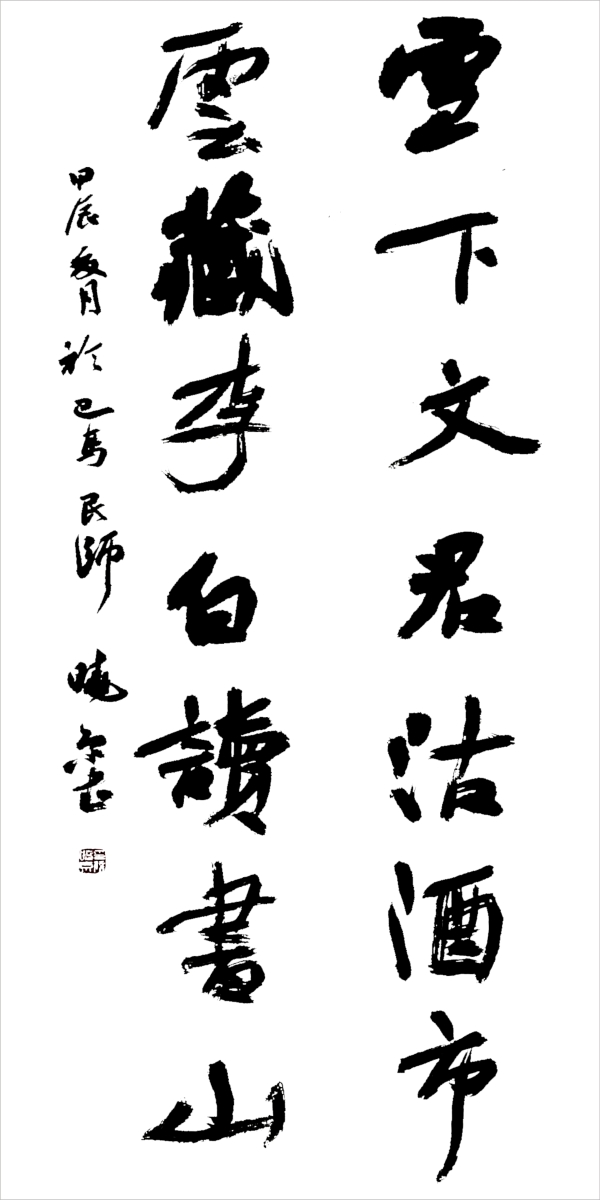 雪下文君沽酒市
雲藏李白讀書山
甲辰夏月於巴蜀民師曉